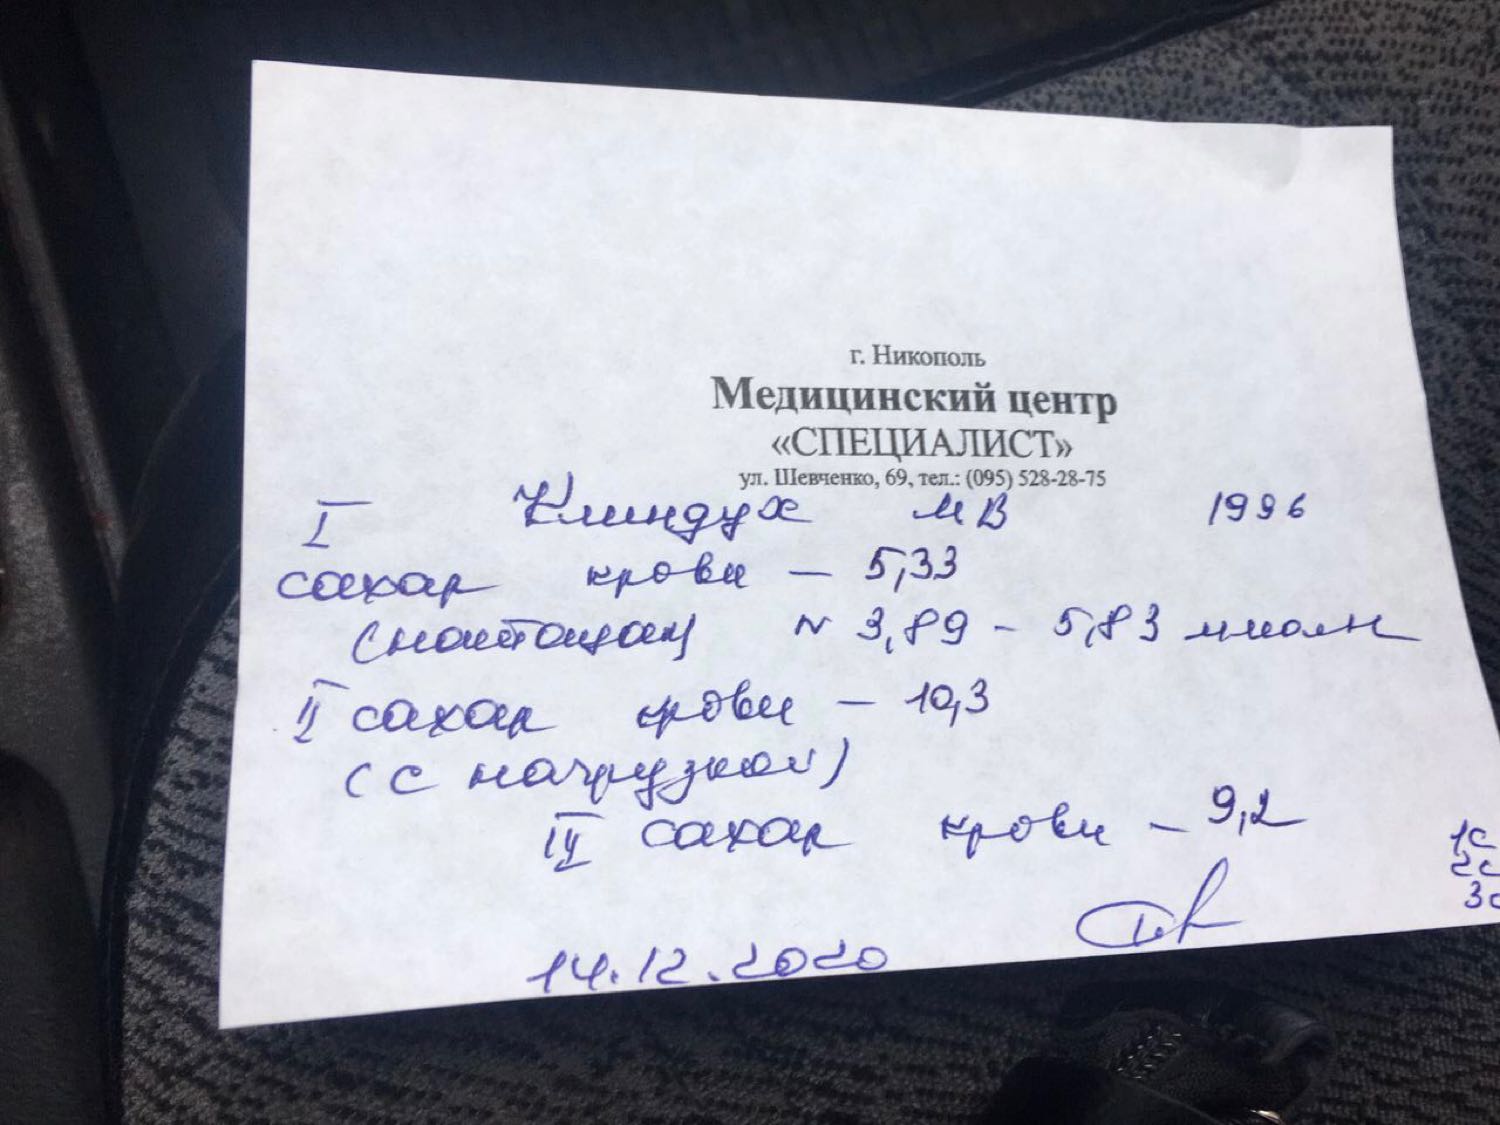 г. Никополь
Медицинский центр
«СПЕЦИАЛИСТ»
ул. Шевченко, 69, тел.: (095) 528-28-75
I Клиндух МВ 1996
сахар крови — 5,33
(натощак) N 3,89 - 5,83 ммоль
II сахар крови — 10,3
(с нагрузкой)
III сахар крови — 9,2
1с
2с
3с
14.12.2020